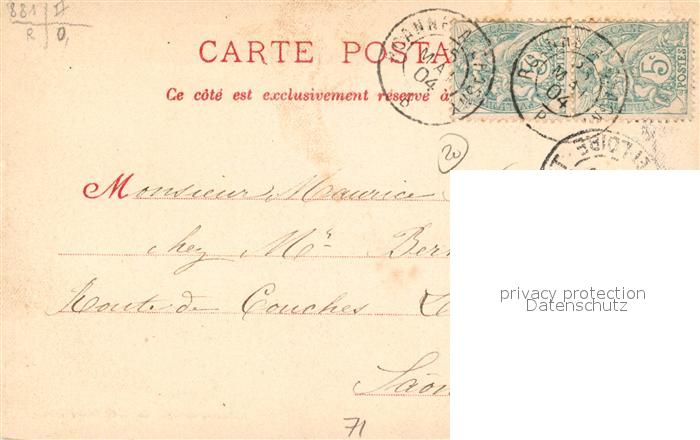 881 II
R 0,
CARTE POSTA
Ce côté est exclusivement réservé à
ROANNE A CLUNY
25 MAI 04
ROANNE
25 MAI 04
5c
POSTES
ET LOIRE
20
Monsieur Maurice
chez Mr Ber
Route de Couches
Saô
71
privacy protection
Datenschutz